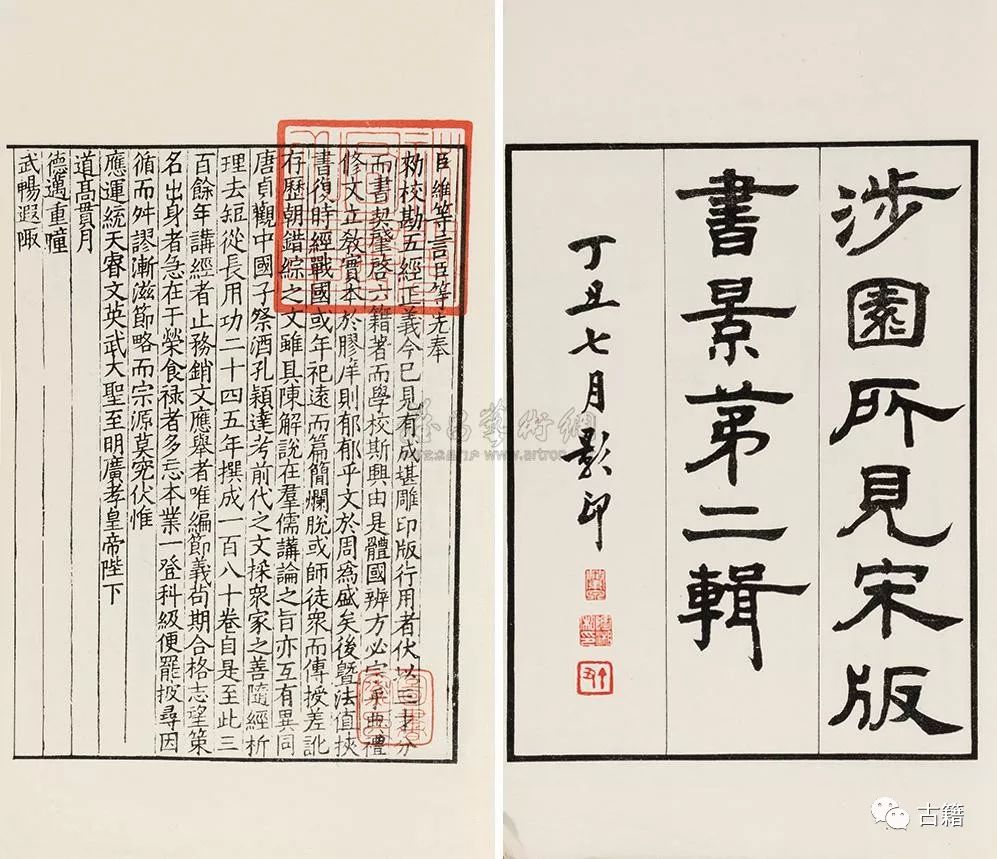 涉園所見宋版
書景第二輯
丁丑七月影印
臣維等言臣等先奉
勑校勘五經正義今已見有成堪雕印版行用者伏以三才分
而書契肇啓六籍著而學校斯興由是體國辨方必宗乎典禮
修文立敎實本於膠庠則郁郁乎文於周爲盛矣後暨法值挾
書復時經戰國或年祀遠而篇簡爛脫或師徒衆而傳授差訛
存歷朝錯綜之文雖具陳解說在羣儒講論之旨亦互有異同
唐貞觀中國子祭酒孔穎達考前代之文採衆家之善隨經析
理去短從長用功二十四五年撰成一百八十卷自是至此三
百餘年講經者止務銷文應舉者唯編節義苟期合格志望策
名出身者急在干榮食禄者多忘本業一登科級便罷披尋因
循而舛謬漸滋節略而宗源莫究伏惟
應運統天睿文英武大聖至明廣孝皇帝陛下
道髙貫月
德邁重瞳
武暢遐陬
www.artron
古籍